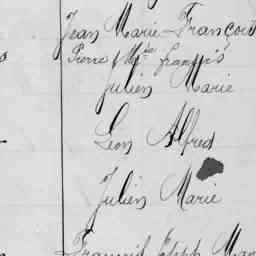 Jean Marie François
Pierre Mie françois
Julien Marie
Léon Alfred
Julien Marie
Joseph Mar